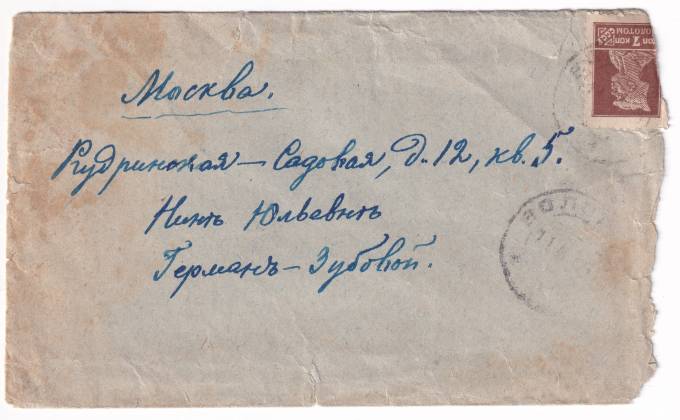 Москва.
Кудринская – Садовая, д. 12, кв. 5.
Нинѣ Юльевнѣ
Германъ – Зубовой.
7 коп
ЗОЛОТОМ